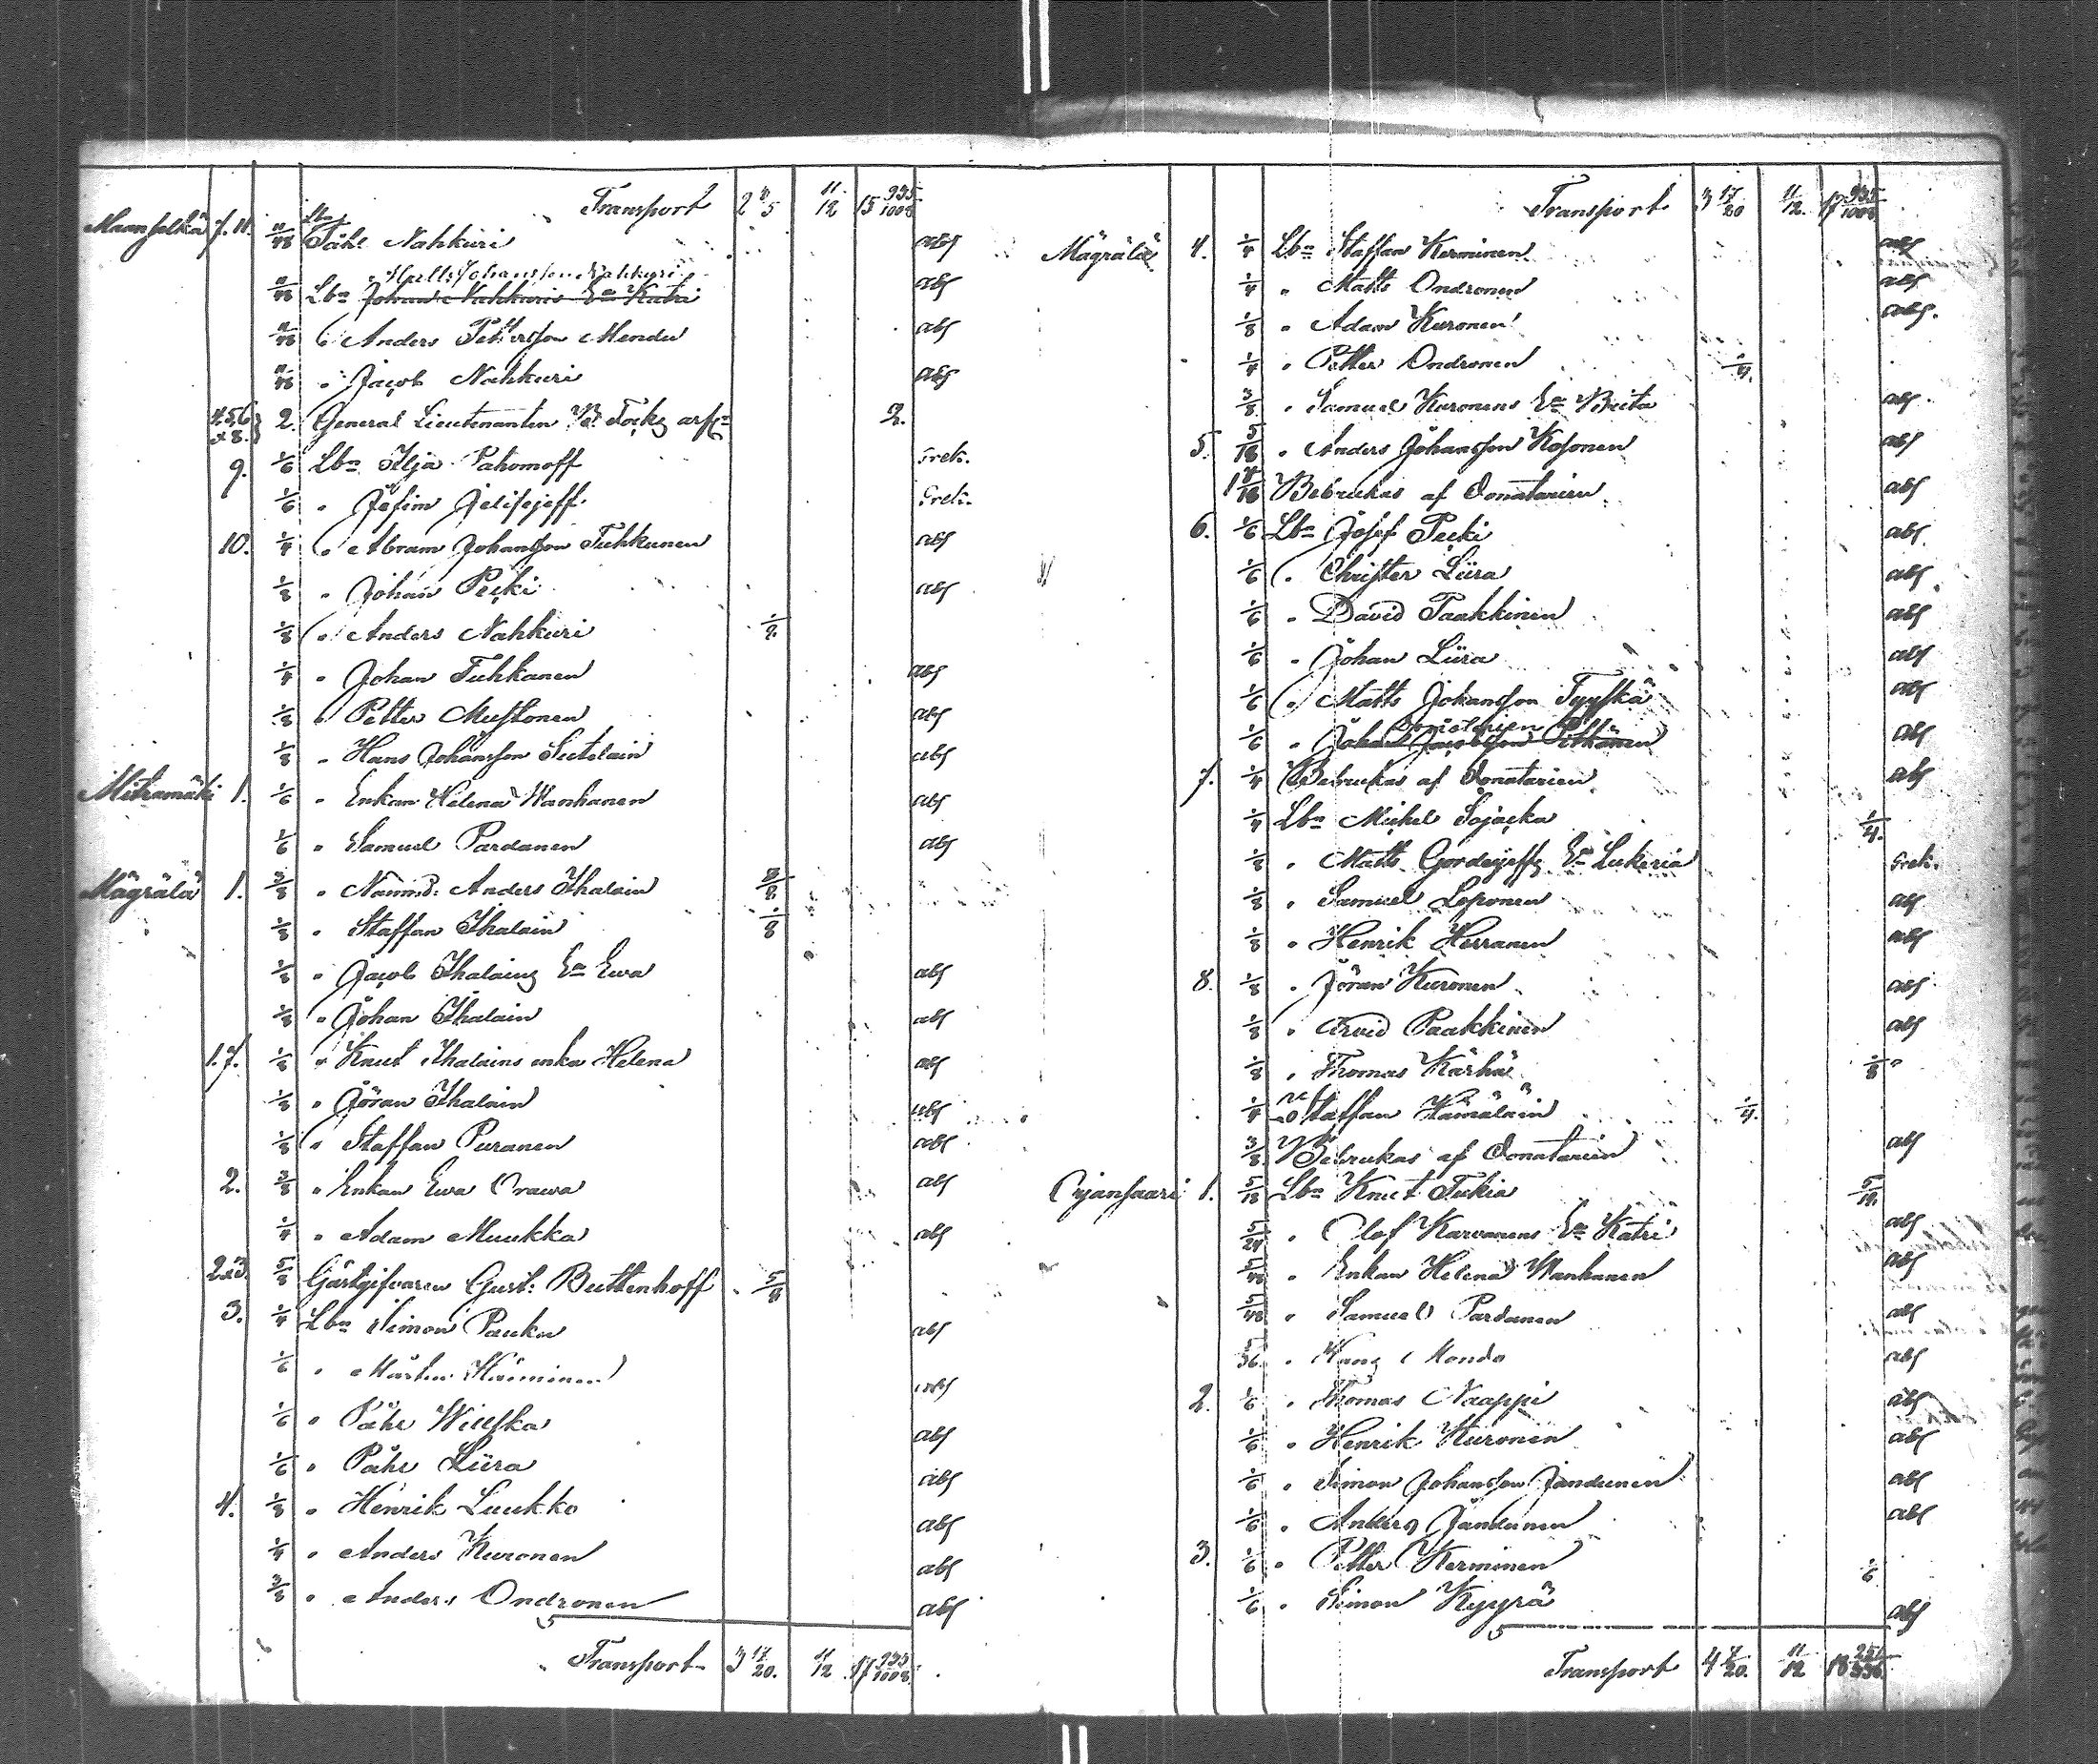 Transport 2 3/5 11/12 15 935/1008
Maanselkä 7. 11. 11/48 Lbn Påhl Nahkuri abs
Matts Johansson Nahkuri
11/48 Lbn Johan Nahkuris Ea Katri abs
11/48 " Anders Pettersson Mendu abs
11/48 " Jacob Nahkuri abs
4.5.6 & 8. 2. General Lieutenanten 2.
9. 1/6 Lbn Ilja Pahomoff Grek.
1/6 " Jefim Jelisejeff Grek.
10. 1/4 " Abram Johansson Tuhkunen abs
1/8 " Johan Pecki abs
1/8 " Anders Nahkuri 1/8
1/4 " Johan Tuhkanen abs
1/8 " Petter Mustonen abs
1/8 " Hans Johansson Sutelain abs
Mitramäki 1. 1/6 " Enkan Helena Wanhanen abs
1/6 " Samuel Pardanen abs
Mägrälä 1. 3/8 " Nämnd: Anders Ihalain 3/8
1/8 " Staffan Ihalain 1/8
1/8 " Jacob Ihalains Ea Ewa abs
1/8 " Johan Ihalain abs
1.7. 1/8 " Knut Ihalains enka Helena abs
1/8 " Jöran Ihalain abs
1/8 " Staffan Puranen abs
2. 3/8 " Enkan Ewa Orawa abs
1/4 " Adam Muukka abs
2&3. 5/8 Gästgifvaren Gust: Buttenhoff 5/8
3. 1/4 Lbn Simon Pauku abs
1/6 " Mårten Häminen abs
1/6 " Påhr Wilska abs
1/6 " Påhr Liira abs
4. 1/8 " Henrik Luukko abs
1/4 " Anders Kuronen abs
3/8 " Anders Ondronen abs
Transport 3 17/20. 11/12 17 935/1008
Transport 3 17/20 11/12. 17 935/1008
Mägrälä 4. 1/4 Lbn Staffan Kerminen abs
1/4 " Matts Ondronen abs
1/8 " Adam Kuronen abs.
1/4 " Petter Ondronen 1/4.
3/8 " Samuel Kuronens Ea Brita abs
5. 5/18 " Anders Johansson Kosonen abs
Bebrukas af Donatarien abs
6. 1/6 Lbn Josef Pecki abs
1/6 " Christer Liira abs
1/6 " David Paakkinen abs
1/6 " Johan Liira abs
1/6 " Matts Johansson Tyyskä abs
Donatarien
1/6 " Johan Jacobsson Pitkänen abs
7. 1/4 Bebrukas af Donatarien abs
1/4 Lbn Michel Sojacka 1/4.
1/8 " Matts Gordejeffs Ea Lukeria Grek.
1/8 " Samuel Loponen abs
1/8 " Henrik Herranen abs
8. 1/8 " Jöran Kuronen abs
1/8 " Arvid Paakkinen abs
1/8 " Thomas Kärhä 1/8
1/4 " Staffan Hämäläin 1/4.
3/8 Bebrukas af Donatarien abs
Ojansaari 1. 5/18 Lbn Knut Tukia 5/18.
5/24 " Olof Karvonens Ea Katri abs
5/48 " Enkan Helena Wanhanen abs
5/48 " Samuel Pardanen abs
5/36. " Hans Mondo abs
2. 1/6 " Thomas Naappi abs
1/6 " Henrik Kuronen abs
1/6 " Simon Johansson Jandunen abs
1/6 " Anders Jandunen abs
3. 1/6 " Petter Kerminen 1/6
1/6 " Simon Kyyrä abs
Transport 4 7/20. 11/12 18 251/336